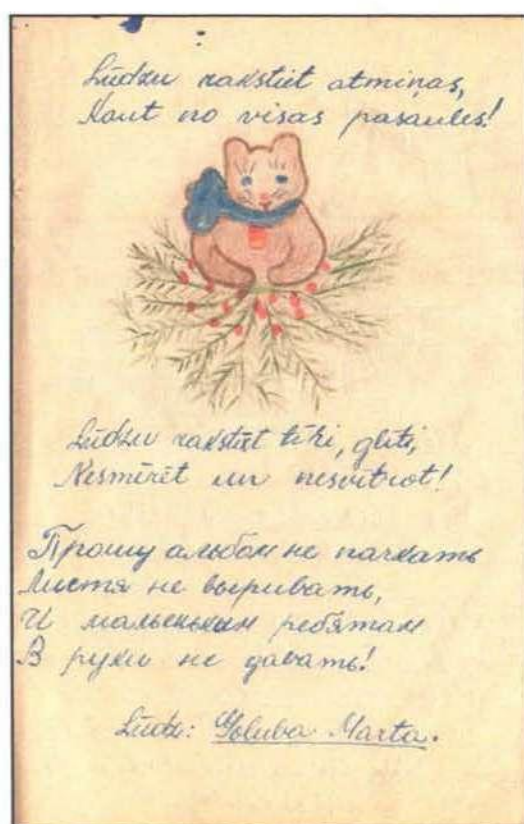 Lūdzu rakstiet atmiņas,
Kaut no visas pasaules!
Lūdzu rakstiet tīri, glīti,
Nesmērēt un nesvītrot!
Прошу альбом не пачкать
Листя не вырывать,
И маленьким ребятам
В руки не давать!
Lūdz: Goluba Marta.